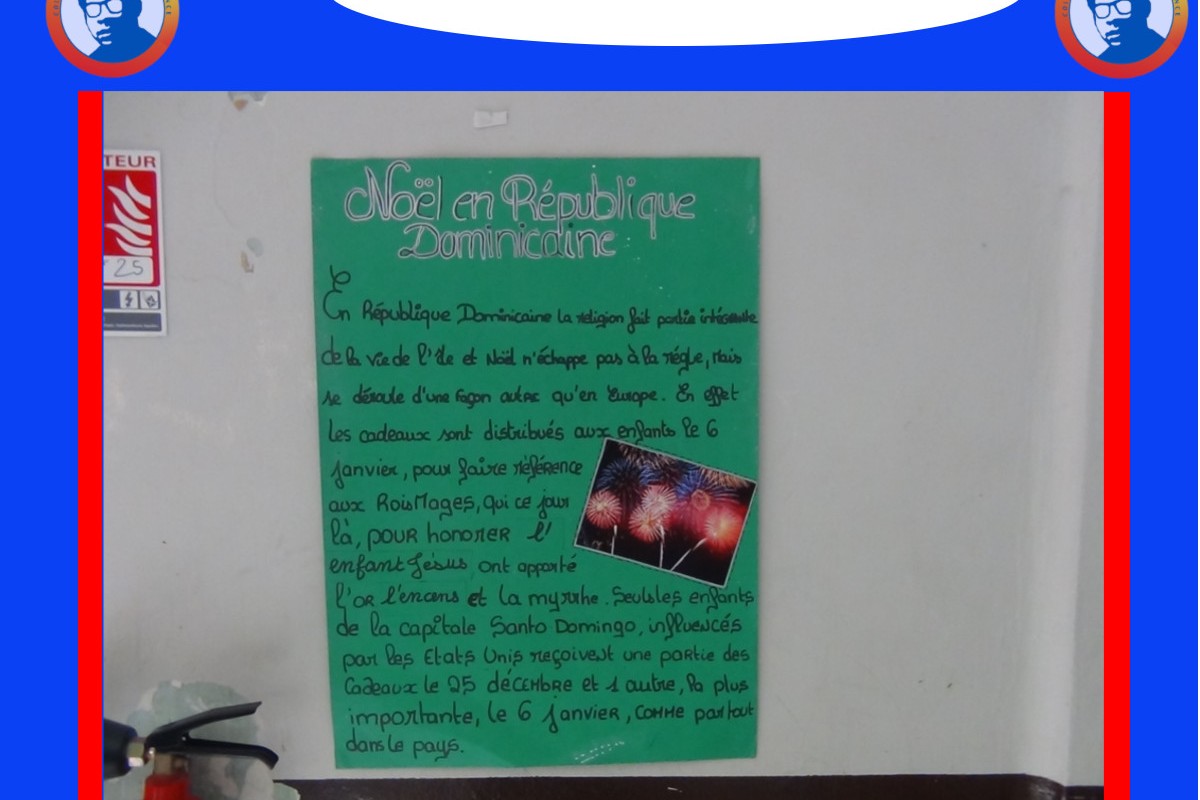 TEUR
25
Noël en République
Dominicaine
En République Dominicaine la religion fait partie intégrante
de la vie de l'île et Noël n'échappe pas à la règle, mais
se déroule d'une façon autre qu'en Europe. En effet
les cadeaux sont distribués aux enfants le 6
janvier, pour faire référence
aux Rois Mages, qui ce jour
là, pour honorer l'
enfant Jésus ont apporté
l'or l'encens et la myrrhe. Seuls les enfants
de la capitale Santo Domingo, influencés
par les Etats Unis reçoivent une partie des
cadeaux le 25 décembre et 1 autre, la plus
importante, le 6 janvier, comme partout
dans le pays.